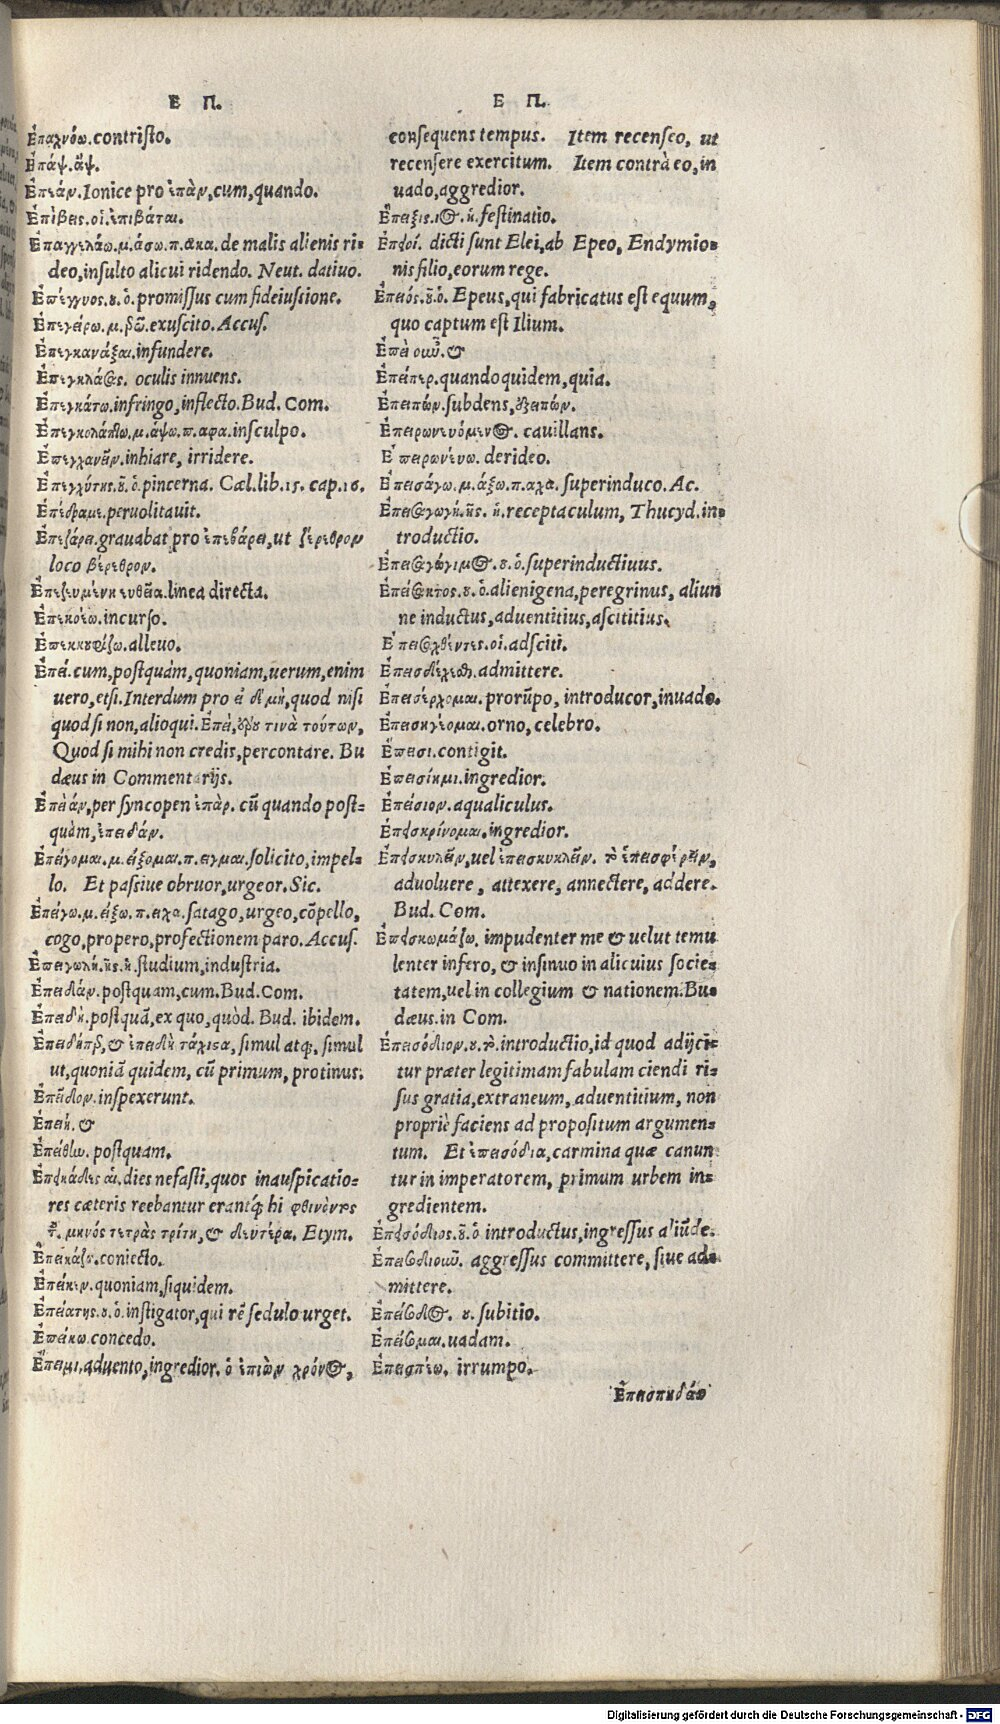 Ε Π.
Ἐπαχνόω. contristo.
Ἐπάψ. ἄψ.
Ἐπεάν. Ionice pro ἐπὰν, cum, quando.
Ἐπέβεις. οἱ ἐπιβάται.
Ἐπεγγελάω. μ. άσω. π. ακα. de malis alienis ri-
deo, insulto alicui ridendo. Neut. datiuo.
Ἐπέγγυος. ου. ὁ. promissus cum fideiussione.
Ἐπεγείρω. μ. ρῶ. exuscito. Accus.
Ἐπεγκανάξαι. infundere.
oculis innuens.
infringo, inflecto. Bud. Com.
Ἐπεγκολάπτω. μ. άψω. π. αφα. insculpo.
Ἐπεγχανεῖν. inhiare, irridere.
Ἐπεγχύτης. ου. ὁ. pincerna. Cæl. lib. 15. cap. 16.
Ἐπέδραμε. peruolitauit.
Ἐπεζάρει. grauabat pro ἐπεβάρει, ut ζέρεθρον
loco βέρεθρον.
Ἐπεζευμένη εὐθεῖα. linea directa.
incurso.
Ἐπεκκουφίζω. alleuo.
Ἐπεί. cum, postquàm, quoniam, uerum, enim
uero, etsi. Interdum pro εἰ δὲ μὴ, quod nisi
quod si non, alioqui. Ἐπεὶ, ἐροῦ τινὰ τούτων,
Quod si mihi non credis, percontare. Bu
dæus in Commentarijs.
Ἐπειὰν, per syncopen ἐπὰν. cũ quando post-
quàm, ἐπειδάν.
Ἐπείγομαι. μ. είξομαι. π. ειγμαι. solicito, impel-
lo. Et passiue obruor, urgeor. Sic.
Ἐπείγω. μ. είξω. π. ειχα. satago, urgeo, cõpello,
cogo, propero, profectionem paro. Accus.
Ἐπειγωλή. ῆς. ἡ. studium, industria.
Ἐπειδάν. postquam, cum. Bud. Com.
Ἐπειδή. postquã, ex quo, quòd. Bud. ibidem.
Ἐπειδήπερ, & ἐπειδὴ τάχιστα, simul atq;, simul
ut, quoniã quidem, cũ primum, protinus.
Ἐπεῖδον. inspexerunt.
Ἐπειή. &
postquam.
Ἐπεικάδες αἱ. dies nefasti, quos inauspicatio-
res cæteris reebantur erantq; hi φθινόντος
τοῦ. μηνός τετρὰς τρίτη, & δευτέρα. Etym.
Ἐπεικάζω. coniecto.
quoniam, siquidem.
instigator, qui rẽ sedulo urget.
Ἐπείκω concedo.
Ἔπειμι. aduento, ingredior. ὁ ἐπιὼν χρόνος,
Ε Π.
consequens tempus. Item recenseo, ut
recensere exercitum. Item contrà eo, in
uado, aggredior.
Ἔπειξις. ιος. ἡ. festinatio.
Ἐπειοί. dicti sunt Elei, ab Epeo, Endymio-
nis filio, eorum rege.
Ἐπειός. οῦ. ὁ. Epeus, qui fabricatus est equum,
quo captum est Ilium.
Ἐπεὶ οὖν. &
Ἐπείπερ. quandoquidem, quia.
Ἐπειπών. subdens, ἐξειπών.
Ἐπειρωνευόμενος. cauillans.
Ἐπειρωνεύω. derideo.
Ἐπεισάγω. μ. άξω. π. αχα. superinduco. Ac.
Ἐπεισαγωγή. ῆς. ἡ. receptaculum, Thucyd. in-
troductio.
Ἐπεισαγώγιμος. ου. ὁ. superinductiuus.
Ἐπείσακτος. ου. ὁ. alienigena, peregrinus, aliun
ne inductus, aduentitius, ascititius.
Ἐπεισαχθέντες. οἱ. adsciti.
Ἐπεισδέχεσθαι. admittere.
Ἐπεισέρχομαι. prorũpo, introducor, inuado.
orno, celebro.
Ἔπεισι. contigit.
ingredior.
Ἐπείσιον. aqualiculus.
Ἐπεισκρίνομαι. ingredior.
Ἐπεισκυλεῖν, uel ἐπεισκυκλεῖν. τὸ ἐπεισφέρειν,
aduoluere, attexere, annectere, addere.
Bud. Com.
Ἐπεισκωμάζω. impudenter me & uelut temu
lenter infero, & insinuo in alicuius socie-
tatem, uel in collegium & nationem. Bu-
dæus. in Com.
Ἐπεισόδιον. ου. τὸ. introductio, id quod adijci-
tur præter legitimam fabulam ciendi ri-
sus gratia, extraneum, aduentitium, non
propriè faciens ad propositum argumen-
tum. Et ἐπεισόδια, carmina quæ canun
tur in imperatorem, primum urbem in-
gredientem.
Ἐπεισόδιος. ου. ὁ introductus, ingressus aliũde.
aggressus committere, siue ad-
mittere.
subitio.
uadam.
irrumpo.
Ἐπεισπηδάω
Digitalisierung gefördert durch die Deutsche Forschungsgemeinschaft - DFG